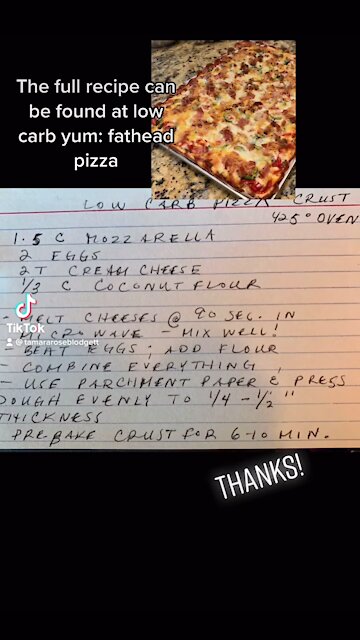 The full recipe can
be found at low
carb yum: fathead
pizza
LOW CARB PIZZA CRUST
425° OVEN
1.5 C MOZZARELLA
2 EGGS
2 T CREAM CHEESE
1/3 C COCONUT FLOUR
- MELT CHEESES @ 90 SEC. IN
MICROWAVE - MIX WELL!
- BEAT EGGS; ADD FLOUR
- COMBINE EVERYTHING,
- USE PARCHMENT PAPER & PRESS
DOUGH EVENLY TO 1/4 - 1/2"
THICKNESS
PREBAKE CRUST FOR 6-10 MIN.
TikTok
@tamararoseblodgett
THANKS!